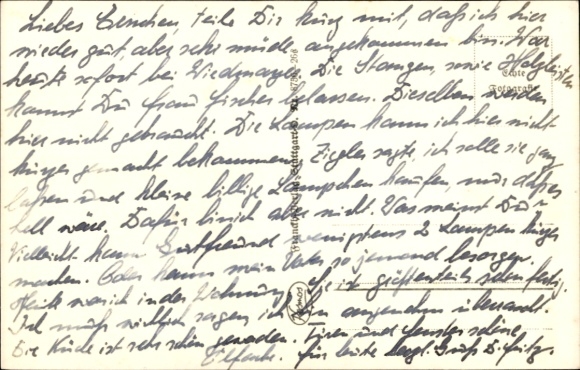 Liebes Lenchen, teile Dir kurz mit, daß ich hier
wieder gut, aber sehr müde angekommen bin. War
heute sofort bei Wiedmayer. Die Stangen, sowie Holzleisten
kannst Du Frau Fischer lassen. Dieselben werden
hier nicht gebraucht. Die Lampen kann ich hier nicht
kürzer gemacht bekommen. Ziegler sagte, ich solle sie
lassen und kleine billige Lämpchen kaufen, nur daß es
hell wäre. Dafür bin ich aber nicht. Was meinst Du?
Vielleicht kann Gutfreund wenigstens 2 Lampen kürzer
machen. Oder kann mein Vater so jemand besorgen.
Heute war ich in der Wohnung. Sie ist größtenteils schon fertig.
Ich muß wirklich sagen, ich bin angenehm überrascht.
Die Küche ist sehr schön geworden. Türen und Fenster schöne
Ölfarbe. Für heute Gruß Fritz.
Echte
Fotografie